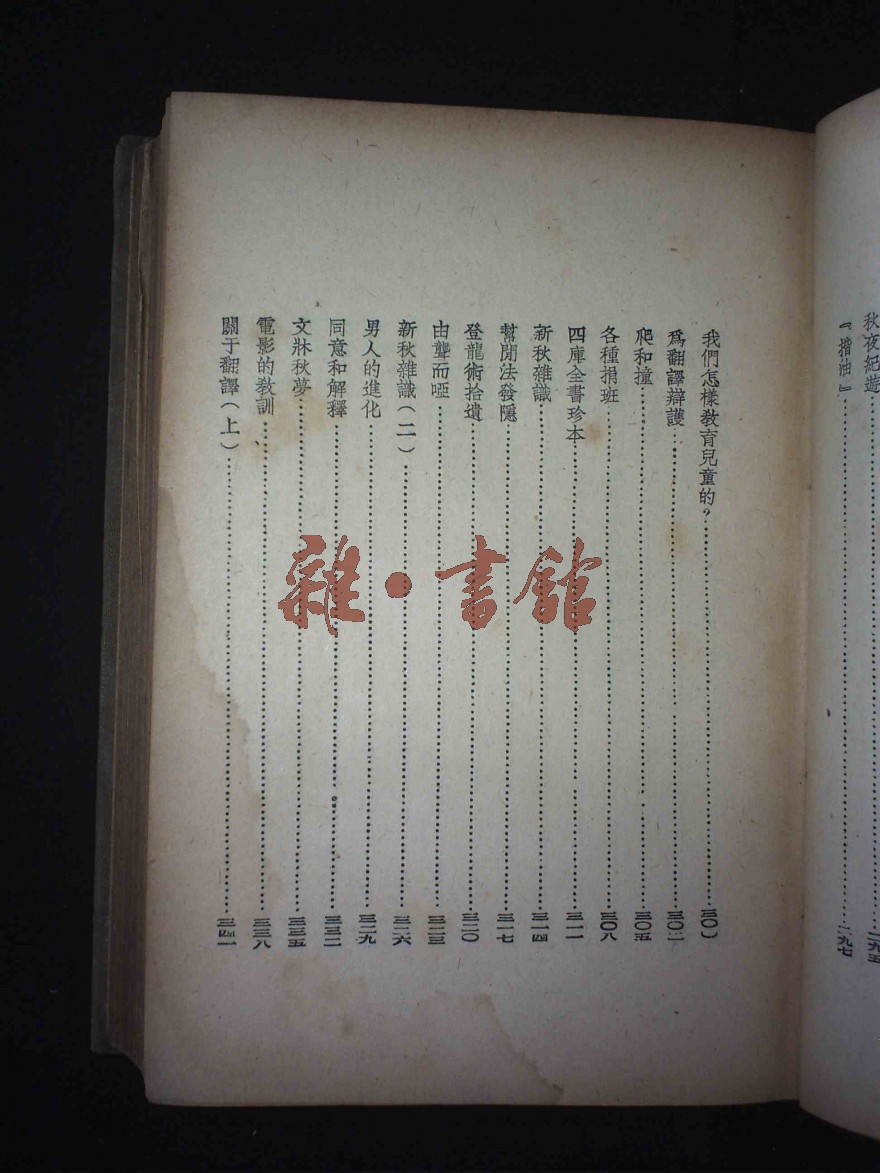 秋夜紀遊……二九五
『揩油』……二九七
我們怎樣教育兒童的？……三〇
爲翻譯辯護……三〇二
爬和撞……三〇五
各種捐班……三〇八
四庫全書珍本……三一一
新秋雜識……三一四
幫閒法發隱……三一七
登龍術拾遺……三二〇
由聾而啞……三二三
新秋雜識（二）……三二六
男人的進化……三二九
同意和解釋……三三二
文牀秋夢……三三五
電影的教訓……三三八
關于翻譯（上）……三四一
雜·書館